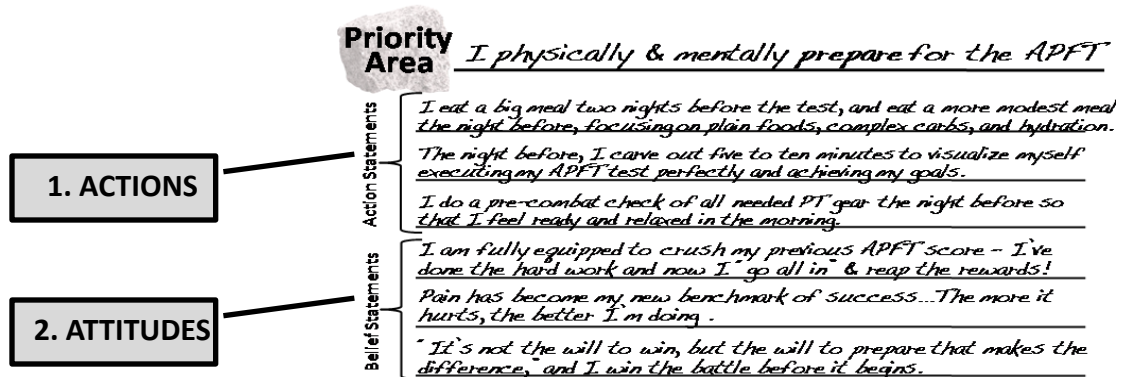 Priority
Area
I physically & mentally prepare for the APFT
1. ACTIONS
Action Statements
I eat a big meal two nights before the test, and eat a more modest meal
the night before, focusing on plain foods, complex carbs, and hydration.
The night before, I carve out five to ten minutes to visualize myself
executing my APFT test perfectly and achieving my goals.
I do a pre-combat check of all needed PT gear the night before so
that I feel ready and relaxed in the morning.
2. ATTITUDES
Belief Statements
I am fully equipped to crush my previous APFT score – I've
done the hard work and now I "go all in" & reap the rewards!
Pain has become my new benchmark of success...The more it
hurts, the better I'm doing .
"It's not the will to win, but the will to prepare that makes the
difference," and I win the battle before it begins.